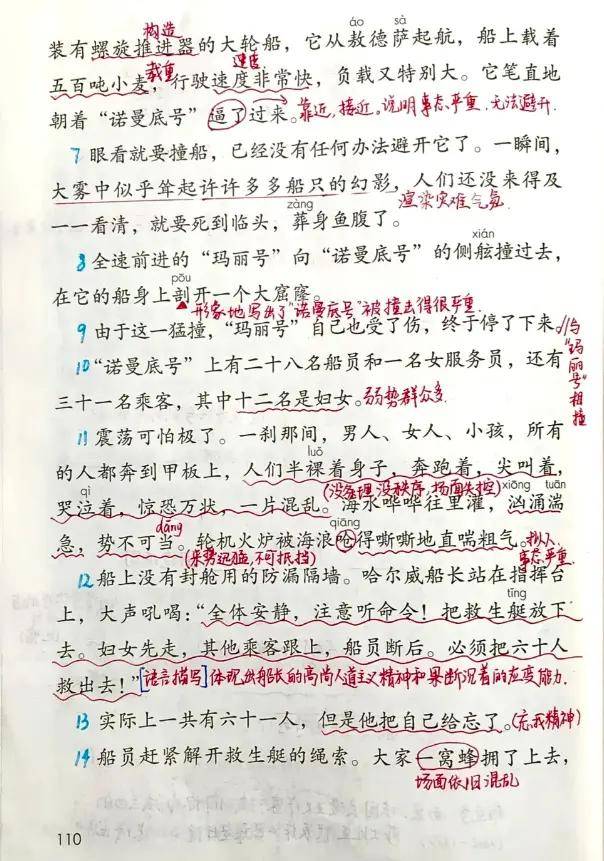 构造
áo sà
装有螺旋推进器的大轮船，它从敖德萨起航，船上载着
载重 速度
五百吨小麦，行驶速度非常快，负载又特别大。它笔直地
朝着“诺曼底号”逼了过来。靠近，接近。说明事态严重，无法避开.
7 眼看就要撞船，已经没有任何办法避开它了。一瞬间，
大雾中似乎耸起许许多多船只的幻影，人们还没来得及
渲染灾难气氛
zàng
一一看清，就要死到临头，葬身鱼腹了。
xián
8 全速前进的“玛丽号”向“诺曼底号”的侧舷撞过去，
pōu
在它的船身上剖开一个大窟窿。
形象地写出了“诺曼底号”被撞击得很严重.
9 由于这一猛撞，“玛丽号”自己也受了伤，终于停了下来。
与“玛丽号”相撞
10 “诺曼底号”上有二十八名船员和一名女服务员，还有
三十一名乘客，其中十二名是妇女。弱势群众多.
11 震荡可怕极了。一刹那间，男人、女人、小孩，所有
luǒ
的人都奔到甲板上，人们半裸着身子，奔跑着，尖叫着，
(没条理没秩序，场面失控)
qì xiōng tuān
哭泣着，惊恐万状，一片混乱。海水哗哗往里灌，汹涌湍
dāng qiāng
急，势不可当。轮机火炉被海浪呛得嘶嘶地直喘粗气。拟人
(来势迅猛，不可抵挡) 事态严重.
12 船上没有封舱用的防漏隔墙。哈尔威船长站在指挥台
tǐng
上，大声吼喝：“全体安静，注意听命令！把救生艇放下
去。妇女先走，其他乘客跟上，船员断后。必须把六十人
救出去！”[语言描写]体现出船长的高尚人道主义精神和果断沉着的应变能力.
13 实际上一共有六十一人，但是他把自己给忘了。(忘我精神)
14 船员赶紧解开救生艇的绳索。大家一窝蜂拥了上去，
场面依旧混乱
110